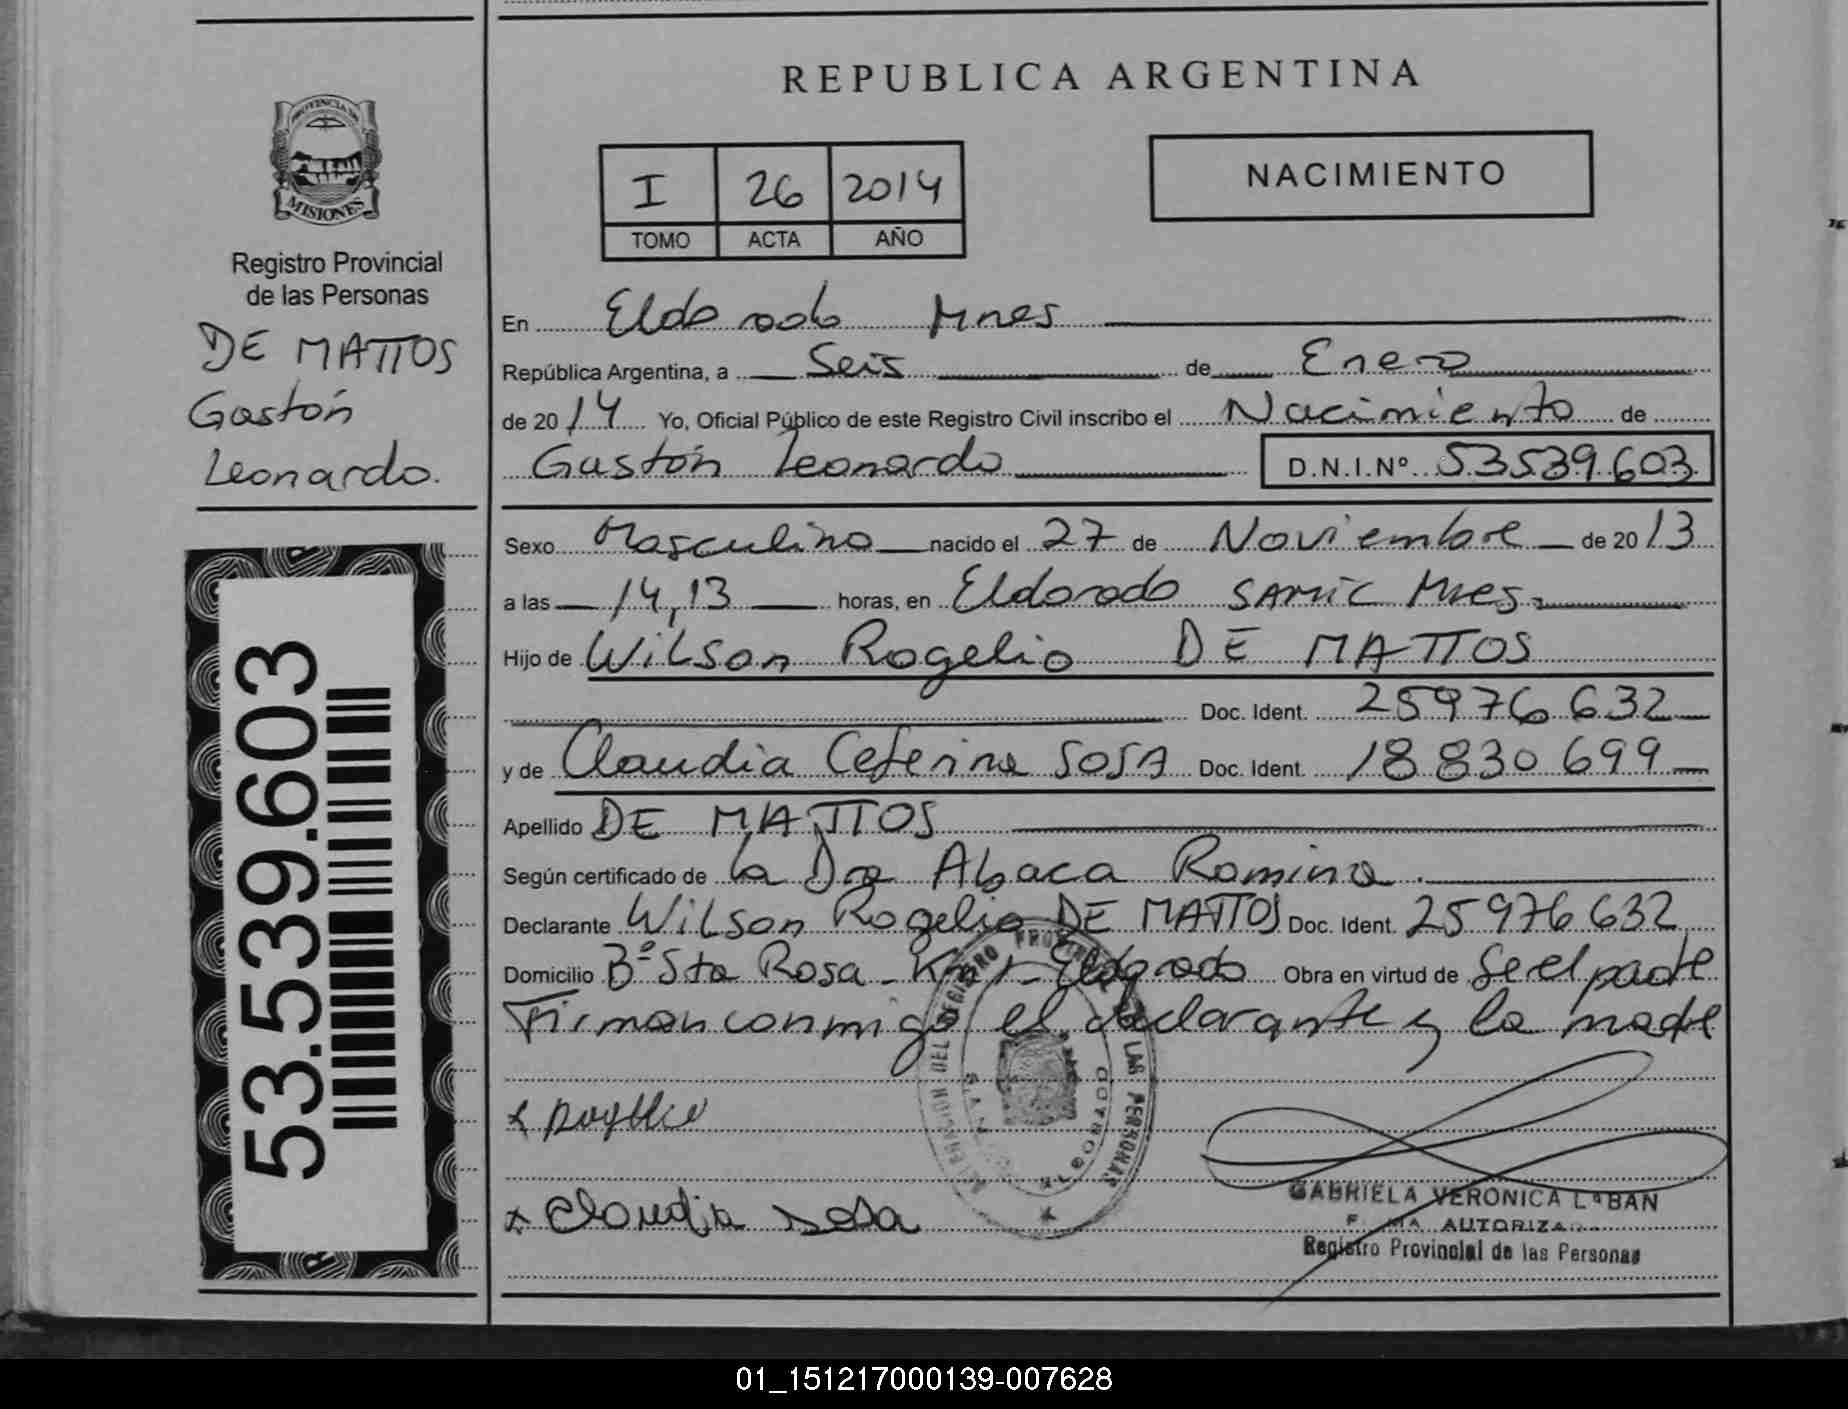 REPUBLICA ARGENTINA
PROVINCIA DE
MISIONES
Registro Provincial
de las Personas
DE MATTOS
Gastón
Leonardo.
53.539.603
I 26 2014
TOMO ACTA AÑO
NACIMIENTO
En Eldorado Mnes
República Argentina, a Seis de Enero
de 2014 Yo, Oficial Público de este Registro Civil inscribo el Nacimiento de
Gastón Leonardo D.N.I.Nº 53539.603
Sexo Masculino nacido el 27 de Noviembre de 2013
a las 14,13 horas, en Eldorado SAMIC Mnes.
Hijo de Wilson Rogelio DE MATTOS
Doc. Ident. 25976632
y de Claudia Ceferina SOSA Doc. Ident. 18830699
Apellido DE MATTOS
Según certificado de la Dra Abaca Romina.
Declarante Wilson Rogelio DE MATTOS Doc. Ident. 25976632
Domicilio Bº Sta Rosa - Km 1 - Eldorado Obra en virtud de Se el padre
Firman conmigo el declarante y la madre
x Rogelio
x Claudia Sosa
DEL REGISTRO PROVINCIAL DE LAS PERSONAS
GABRIELA VERONICA LABAN
FIRMA AUTORIZADA
Registro Provincial de las Personas
01_151217000139-007628